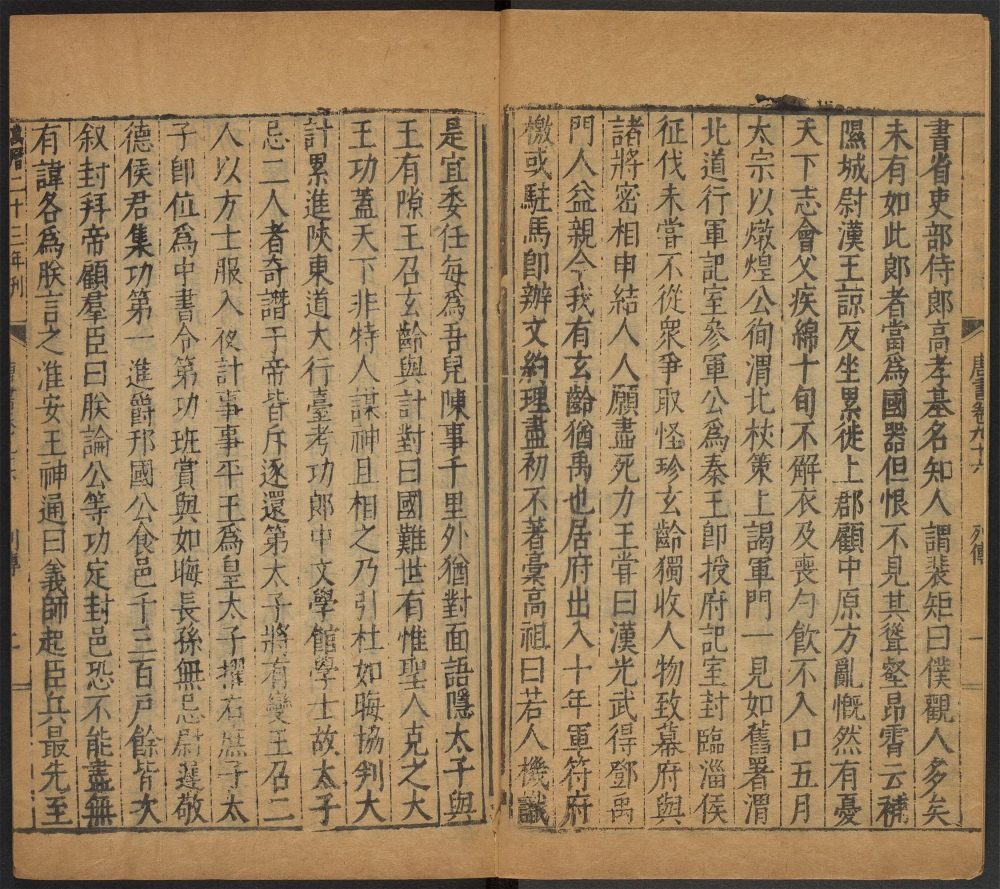 唐書卷九十六
列傳
一
書省吏部侍郎高孝基名知人謂裴矩曰僕觀人多矣
未有如此郎者當爲國器但恨不見其聳壑昂霄云補
隰城尉漢王諒反坐累徙上郡顧中原方亂慨然有憂
天下志會父疾綿十旬不解衣及喪勺飮不入口五月
太宗以燉煌公徇渭北杖策上謁軍門一見如舊署渭
北道行軍記室參軍公爲秦王卽授府記室封臨淄侯
征伐未嘗不從衆爭取怪珍玄齡獨收人物致幕府與
諸將密相申結人人願盡死力王嘗曰漢光武得鄧禹
門人益親今我有玄齡猶禹也居府出入十年軍符府
檄或駐馬卽辦文約理盡初不著稾高祖曰若人機識
是宜委任每爲吾兒陳事千里外猶對面語隱太子與
王有隙王召玄齡與計對曰國難世有惟聖人克之大
王功蓋天下非特人謀神且相之乃引杜如晦協判大
計累進陝東道大行臺考功郎中文學館學士故太子
忌二人者奇譖于帝皆斥逐還第太子將有變王召二
人以方士服入夜計事事平王爲皇太子擢右庶子太
子卽位爲中書令第功班賞與如晦長孫無忌尉遲敬
德侯君集功第一進爵邢國公食邑千三百戶餘皆次
叙封拜帝顧羣臣曰朕論公等功定封邑恐不能盡無
有諱各爲朕言之淮安王神通曰義師起臣兵最先至
二十三年刊
列傳
二